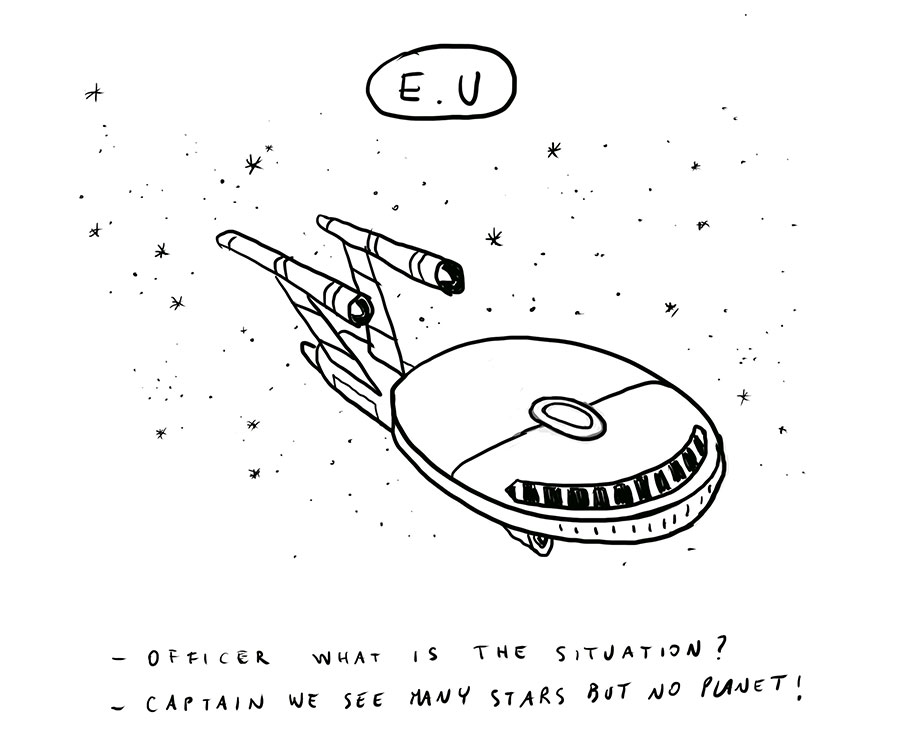 E.U
- OFFICER WHAT IS THE SITUATION?
- CAPTAIN WE SEE MANY STARS BUT NO PLANET!